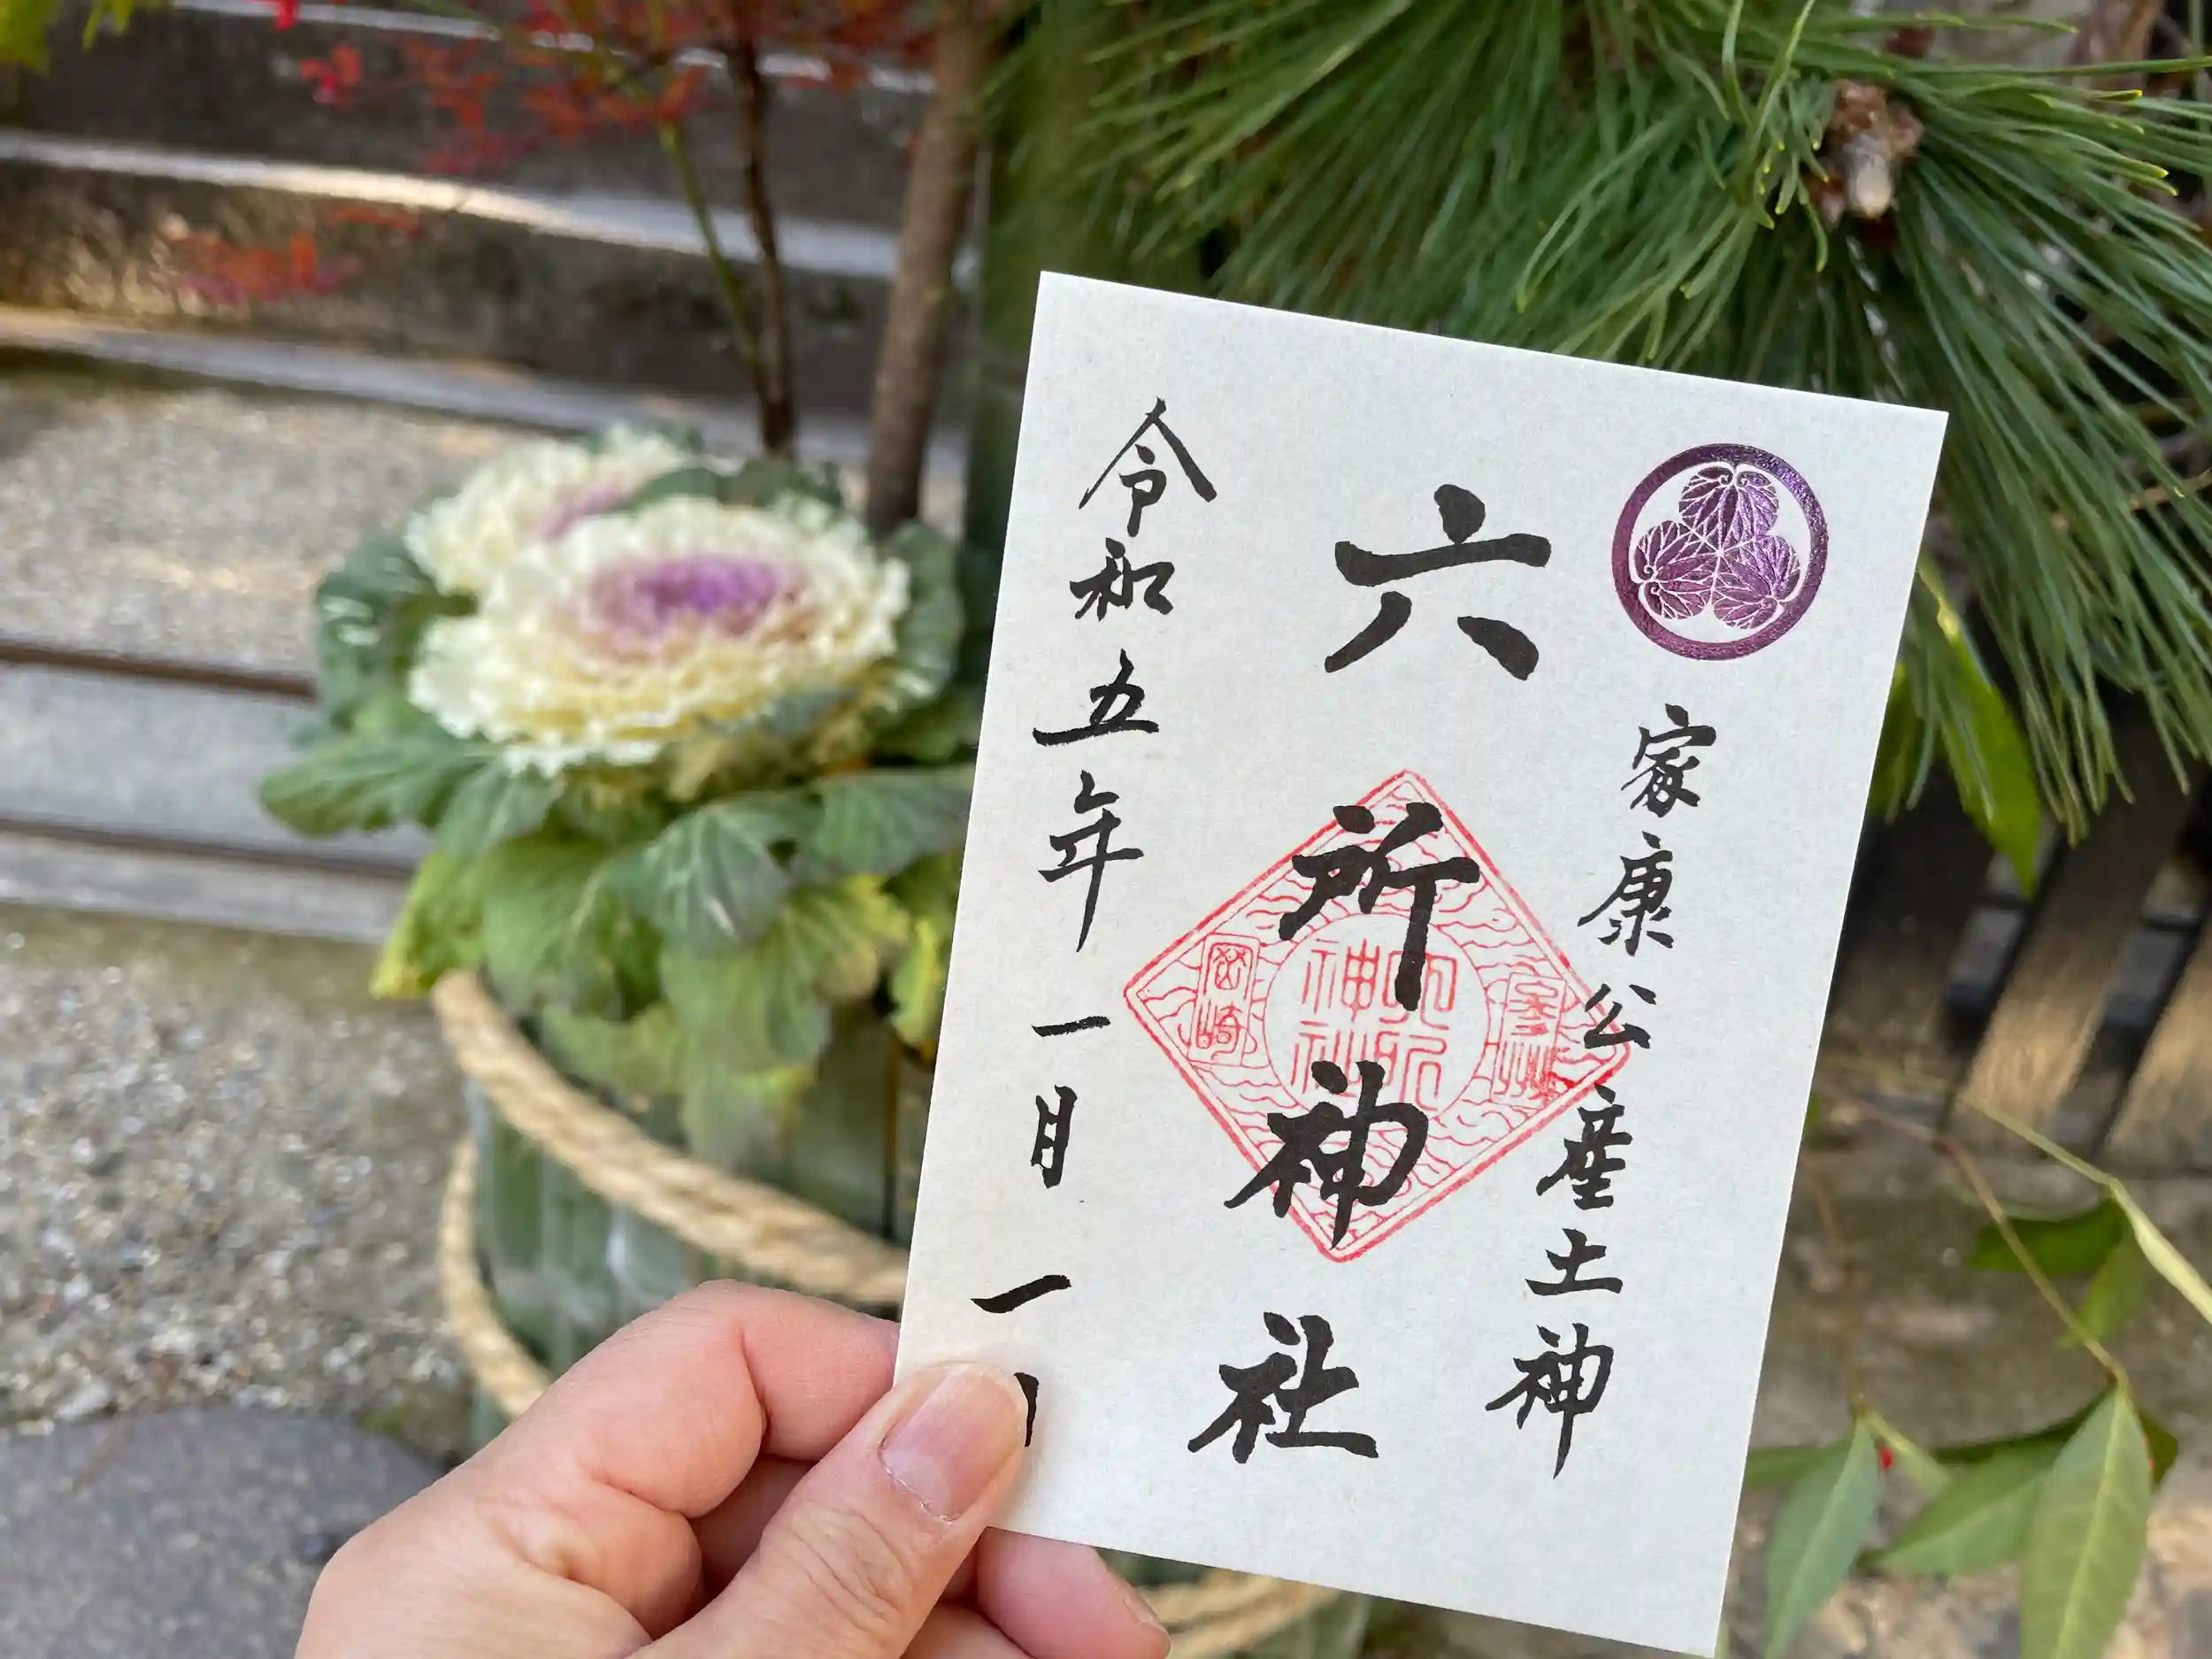 家康公産土神
六所神社
参州
六所神社
岡崎
令和五年一月一